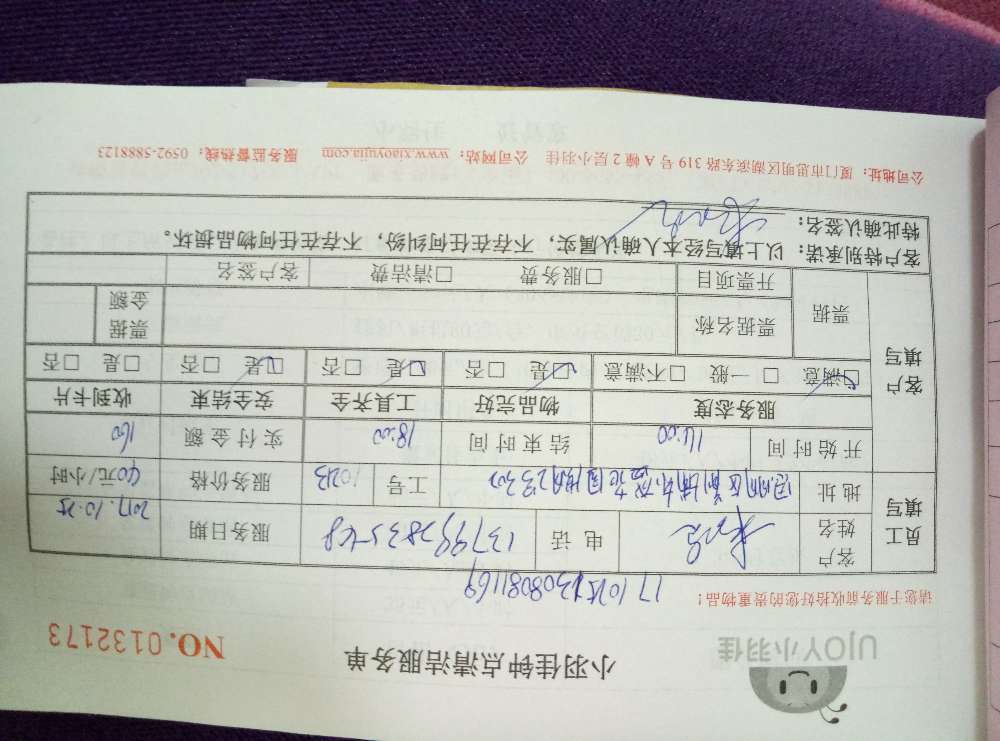 UJOY小羽佳
小羽佳钟点清洁服务单
NO.0132173
请您于服务前收拾好您的贵重物品!
员工填写
客户姓名
电话
服务日期 2017.10.25
地址
工号 10213
服务价格 40元/小时
开始时间 14:00 结束时间 18:00 实付金额 160
客户填写
服务态度 物品完好 工具齐全 安全结束 收到卡片
☑满意 □一般 □不满意 ☑是 □否 ☑是 □否 ☑是 □否 □是 □否
票据 票据名称 票据金额
开票项目 □服务费 □清洁费 客户签名
客户特别承诺:以上填写经本人确认属实,不存在任何纠纷,不存在任何物品损坏。
特此确认签名:
公司地址:厦门市思明区湖滨东路 319 号 A 幢 2 层小羽佳 公司网站:www.xiaoyujia.com 服务监督热线:0592-5888123